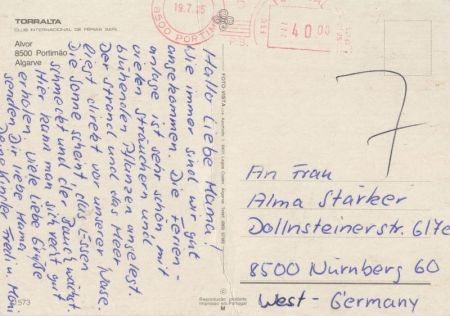 TORRALTA
CLUB INTERNACIONAL DE FÉRIAS SARL
Alvor
8500 Portimão
Algarve
19.7.85
8500 PORTIMÃO
4000
Hallo liebe Mama!
Wie immer sind wir gut
angekommen. Die Ferien-
anlage ist sehr schön mit
vielen Sträuchern und
blühenden Pflanzen angelegt.
Der Strand und das Meer
liegt direkt vor unserer Nase.
Die Sonne scheint, das Essen
schmeckt und der Bauch wächst.
Hier kann man sich recht gut
erholen. Viele liebe Grüße
senden Dir liebe Mama
Deine Kinder Fredi u. Moni
FOTO VISTA
7
An Frau
Alma Stärker
Dollnsteinerstr. 6/7e
8500 Nürnberg 60
West - Germany
1573
Reprodução proibida
Impresso em Portugal
M